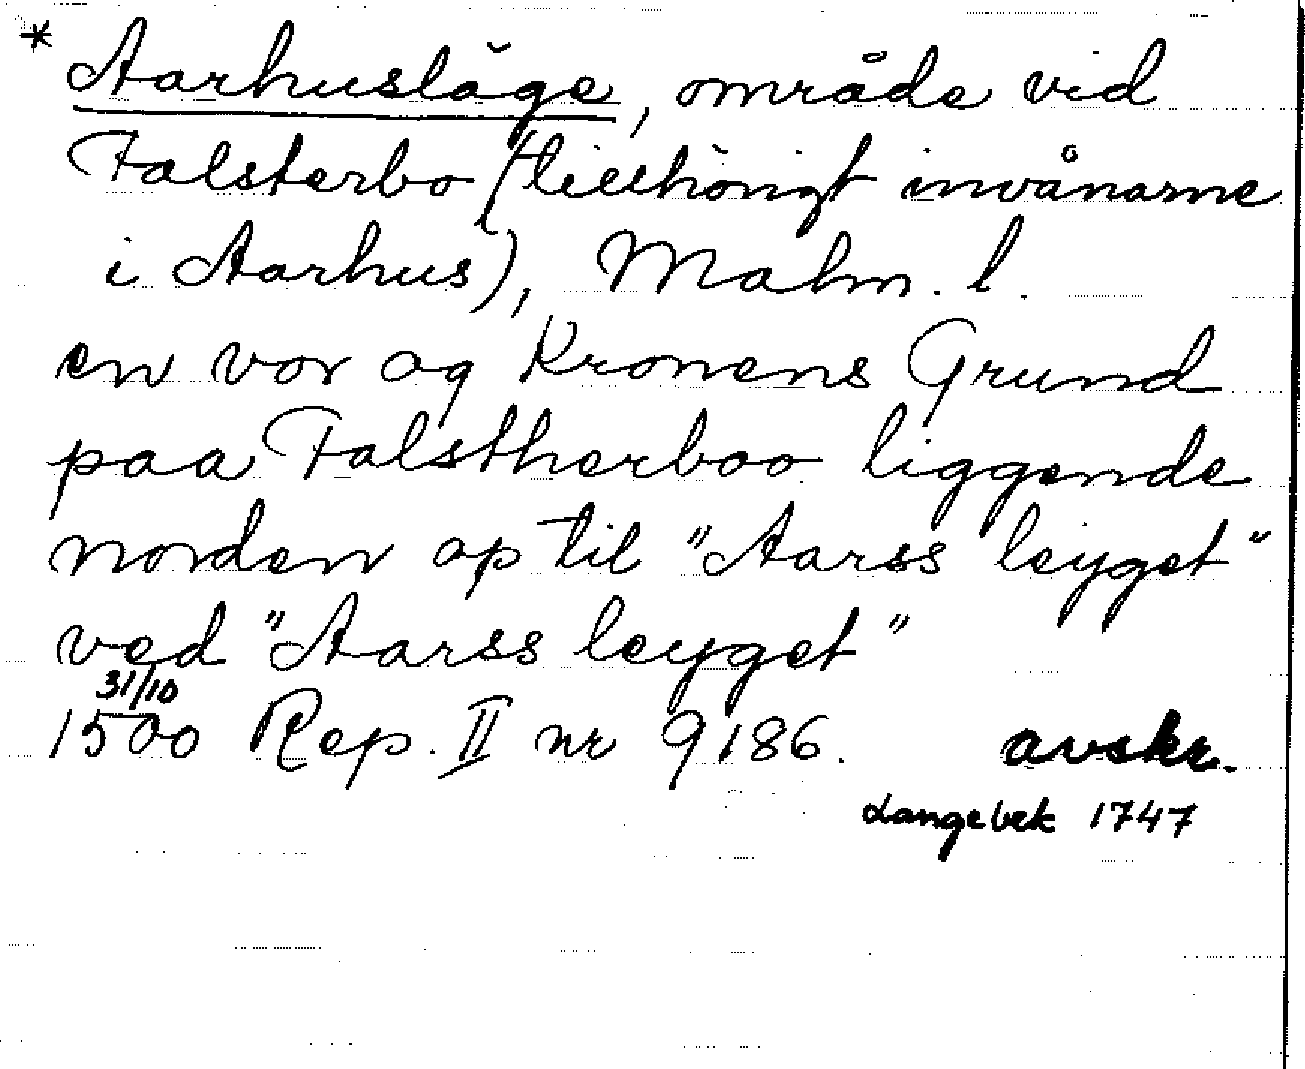 * Aarhusläge, område vid
Falsterbo (tillhörigt invånarne
i Aarhus), Malm. l.
en vor og Kronens Grund
paa Falstherboo liggende
norden op til "Aarss leyget"
ved "Aarss leyget"
31/10
1500 Rep. II nr 9186. avskr.
Langebek 1747